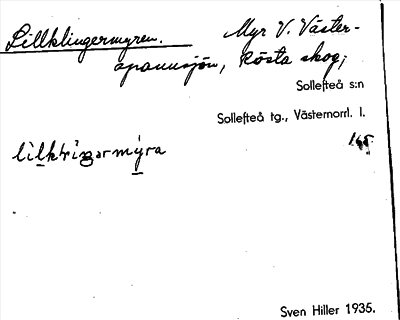 Lillklingermyren. Myr V. Väster-
spannsjön, Rösta skog;
Sollefteå s:n
Sollefteå tg., Västernorrl. l.
Sven Hiller 1935.